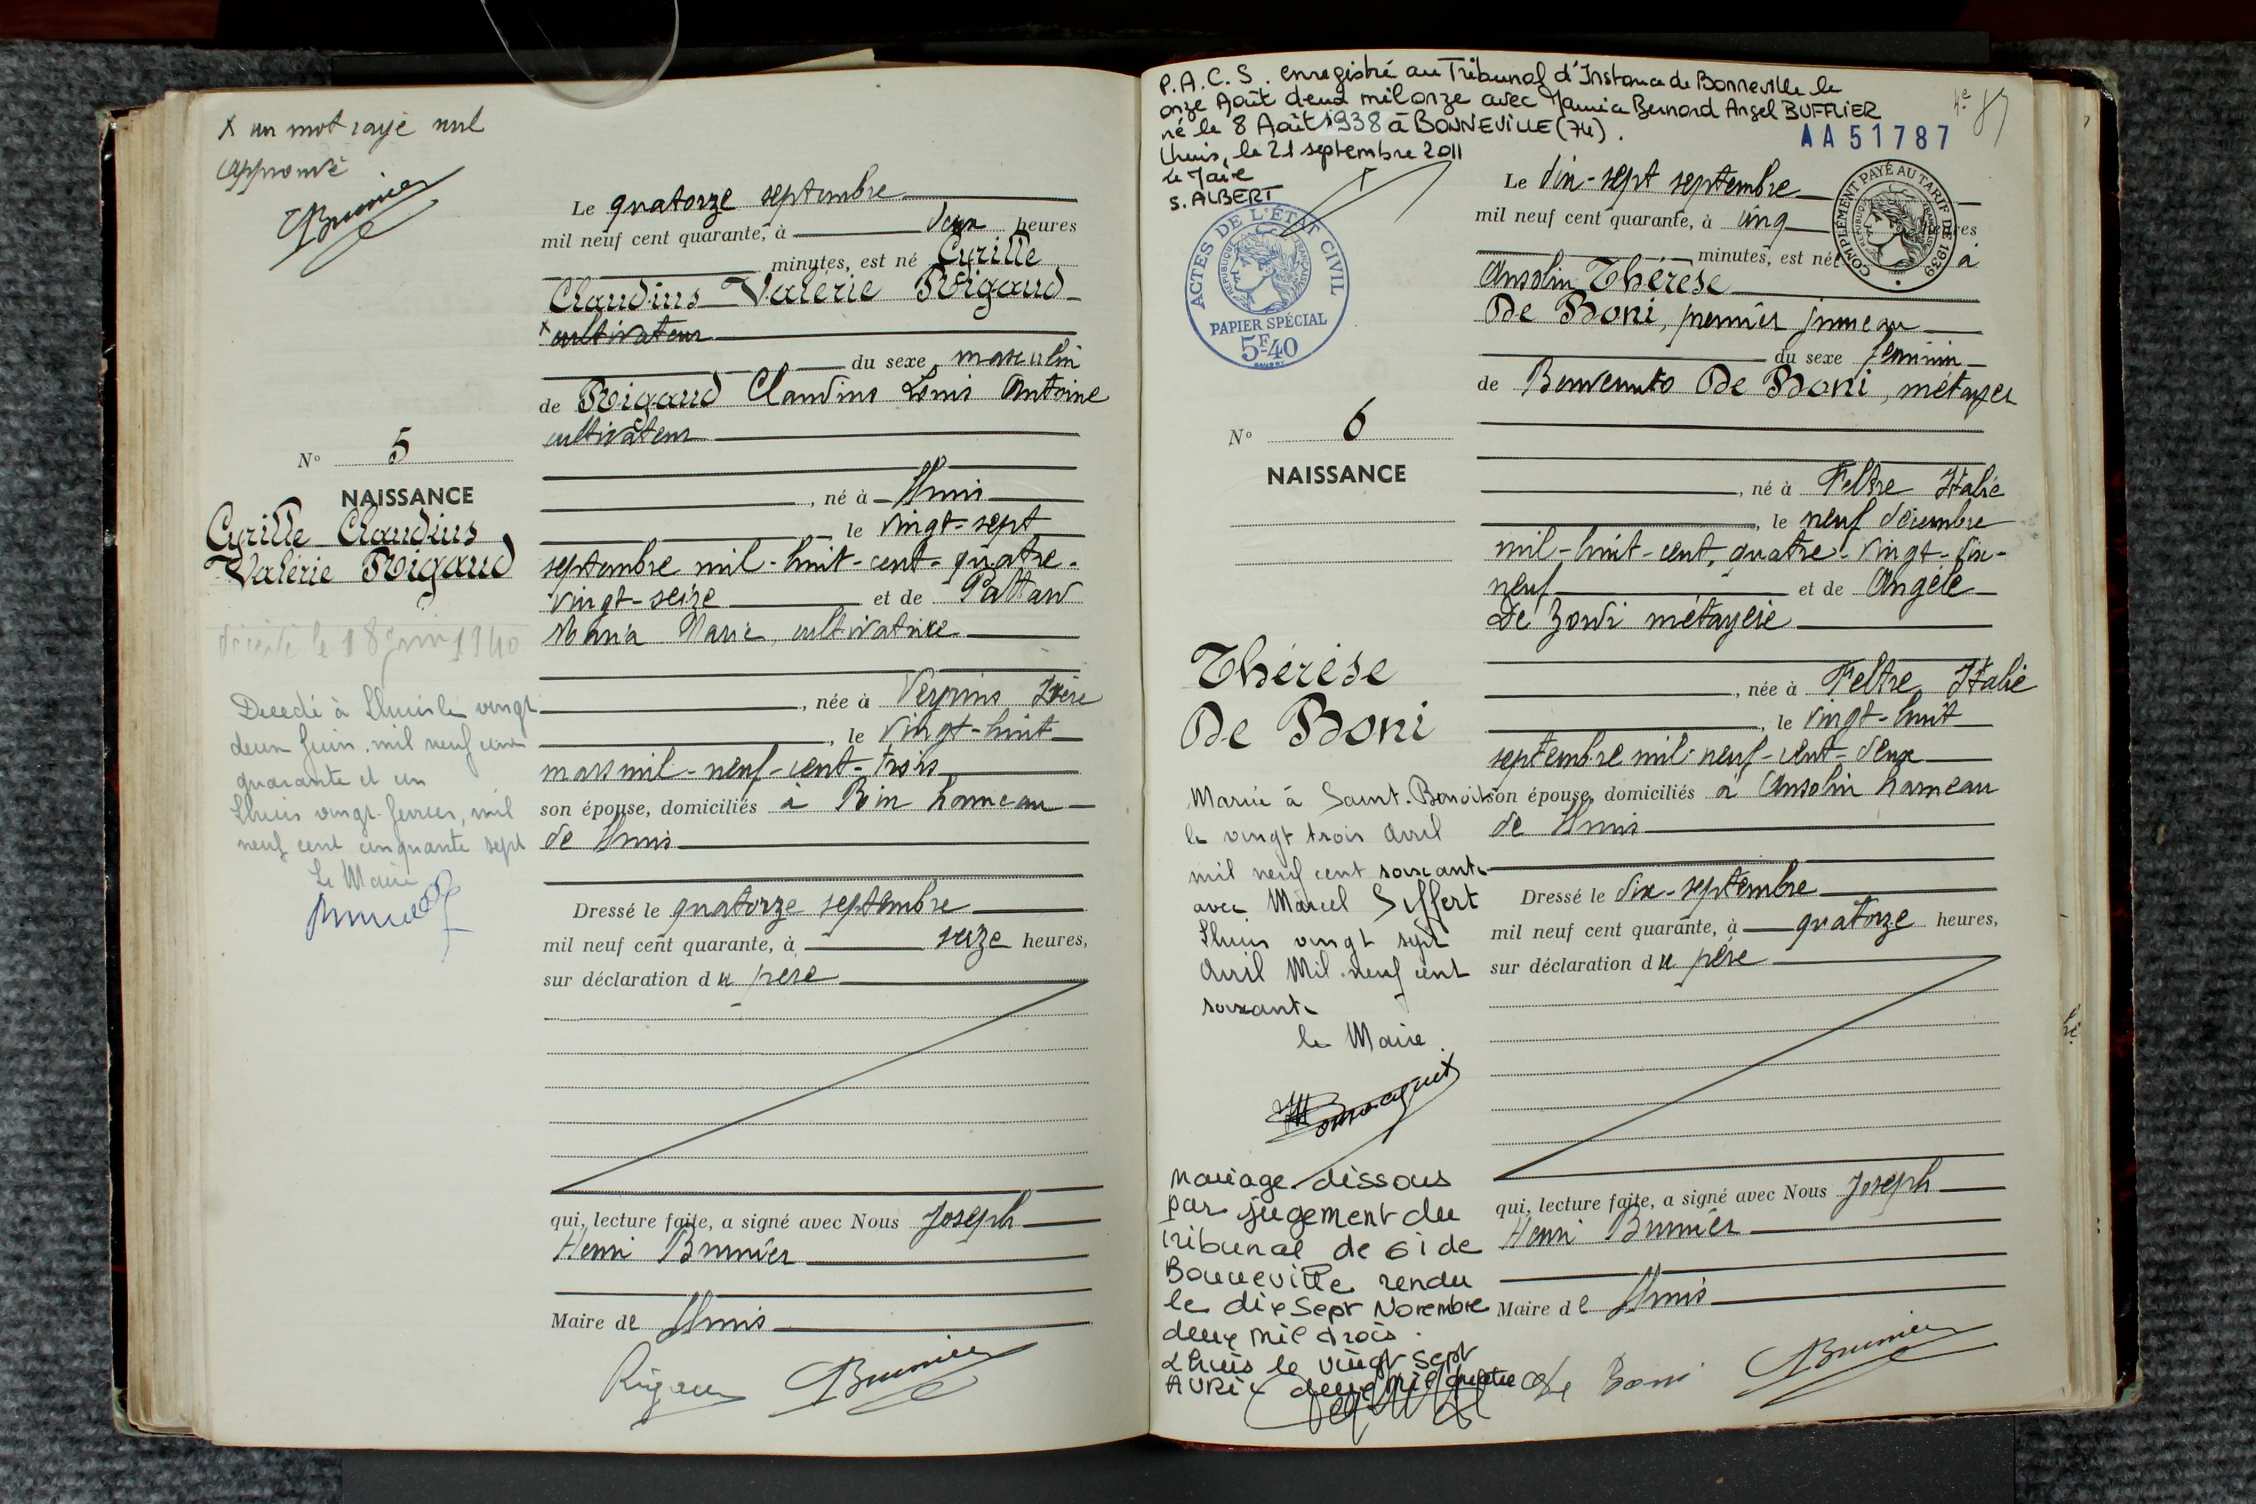 x un mot rayé nul
approuvé
Brunier
Le quatorze septembre
mil neuf cent quarante, à deux heures
minutes, est né Cyrille
Claudius Valérie Rigaud
x cultivateur
du sexe masculin
de Rigaud Claudius Louis Antoine
cultivateur
, né à Lhuis
le vingt-sept
septembre mil-huit-cent-quatre-
vingt-seize et de
Maria Marie, cultivatrice
, née à Veyrins Isère
, le vingt-huit
mars mil-neuf-cent-trois
son épouse, domiciliés à Rix hameau
de Lhuis
Dressé le quatorze septembre
mil neuf cent quarante, à seize heures,
sur déclaration du père
qui, lecture faite, a signé avec Nous Joseph
Henri Brunier
Maire de Lhuis
Rigaud Brunier
N° 5
NAISSANCE
Cyrille Claudius
Valérie Rigaud
décédé le 18 juin 1940
Decedé à Lhuis le vingt
deux Juin mil neuf cent
quarante et un
Lhuis vingt fevrier, mil
neuf cent cinquante sept
Le Maire
P.A.C.S. enregistré au Tribunal d'Instance de Bonneville le
onze Août deux mil onze avec Maurice Bernard Angel BUFFLIER
né le 8 Août 1938 à BONNEVILLE (74).
Lhuis, le 21 septembre 2011
Le Maire
S. ALBERT
AA51787
ACTES DE L'ÉTAT CIVIL
RÉPUBLIQUE FRANÇAISE
PAPIER SPÉCIAL
5F40
COMPLÉMENT PAYÉ AU TARIF DE 1939
Le dix-sept septembre
mil neuf cent quarante, à cinq heures
minutes, est née à
Ansolin Thérèse
De Boni, premier jumeau
du sexe féminin
de Benvenuto De Boni, métayer
, né à Feltre Italie
, le neuf décembre
mil-huit-cent, quatre-vingt-dix-
neuf et de Angèle
De Zordi métayère
, née à Feltre Italie
, le vingt-huit
septembre mil neuf-cent-deux
son épouse, domiciliés à Ansolin hameau
de Lhuis
Dressé le dix-septembre
mil neuf cent quarante, à quatorze heures,
sur déclaration du père
qui, lecture faite, a signé avec Nous Joseph
Henri Brunier
Maire de Lhuis
De Boni Brunier
N° 6
NAISSANCE
Thérèse
De Boni
Mariée à Saint-Benoit
le vingt trois avril
mil neuf cent soixante
avec Marcel Siffert
Lhuis vingt sept
Avril Mil neuf cent
soixante
le Maire
mariage dissous
par jugement du
tribunal de GI de
Bonneville rendu
le dix sept Novembre
deux mil trois.
Lhuis le vingt sept
AVRIL deux mil quatre